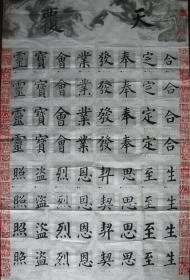 天慶
合合合合生生生生
定定定定至至至至
奉奉奉奉思思思思
發發發發契契契契
業業業業恩恩恩恩
會會會會烈烈烈烈
寶寶寶寶盜盜盜盜
靈靈靈靈照照照照